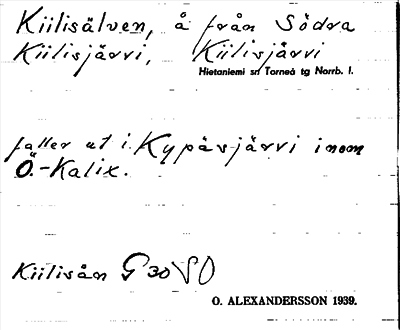 Kiilisälven, å från Södra
Kiilisjärvi, Kiilisjärvi
Hietaniemi sn Torneå tg Norrb. l.
faller ut i Kypäsjärvi inom
Ö.-Kalix.
Kiilisån G 30 SO
O. ALEXANDERSSON 1939.